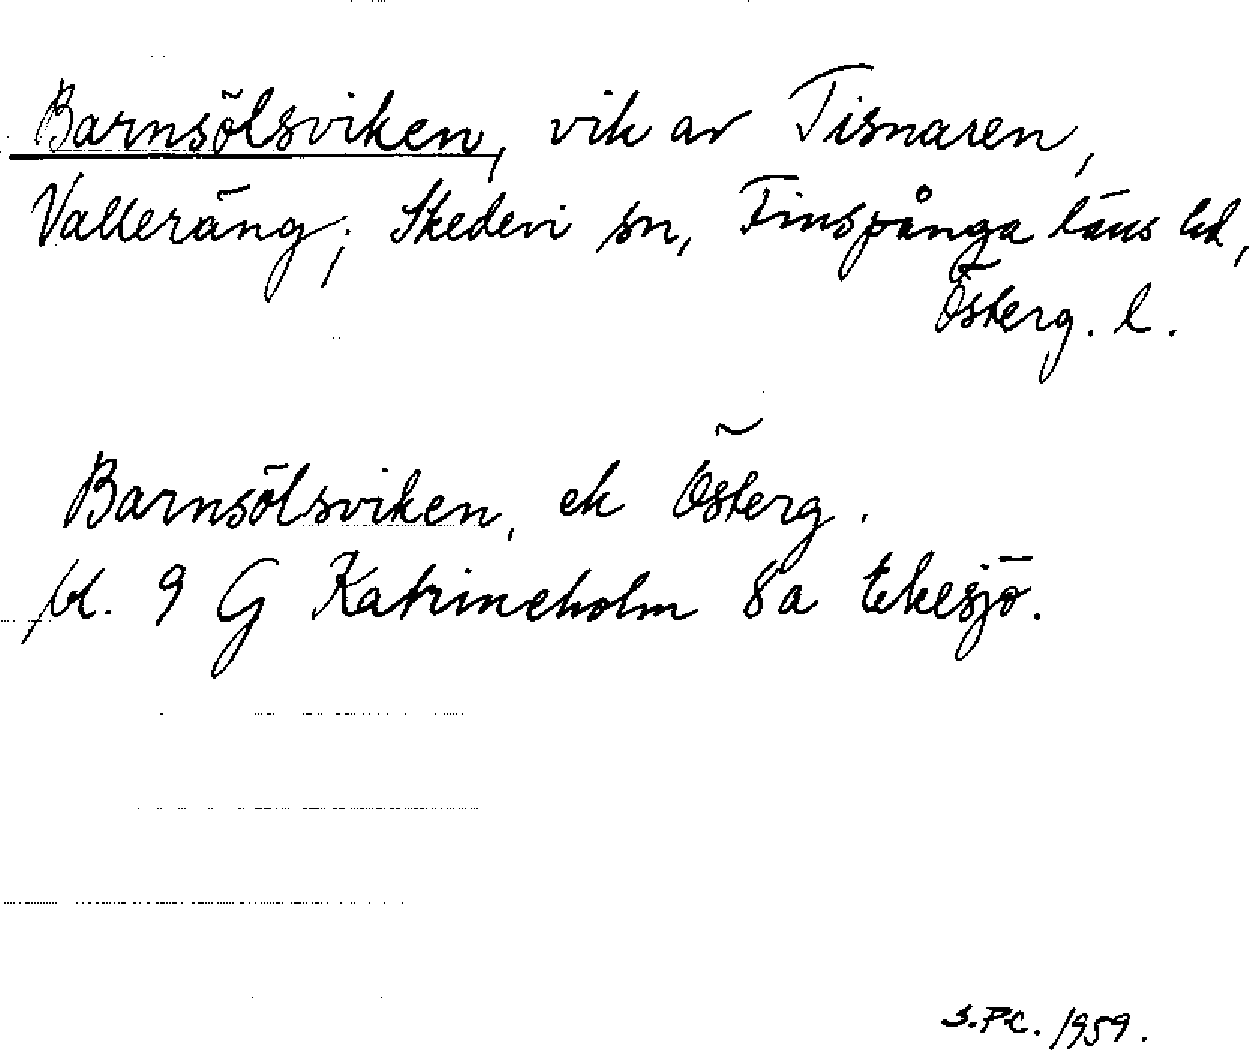 Barnsölsviken, vik av Tisnaren,
Valleräng; Skedevi sn, Finspånga läns hd,
Österg. l.
Barnsölsviken, ek Österg.
bl. 9 G Katrineholm 8a Ekesjö.
S.P.C. 1959.